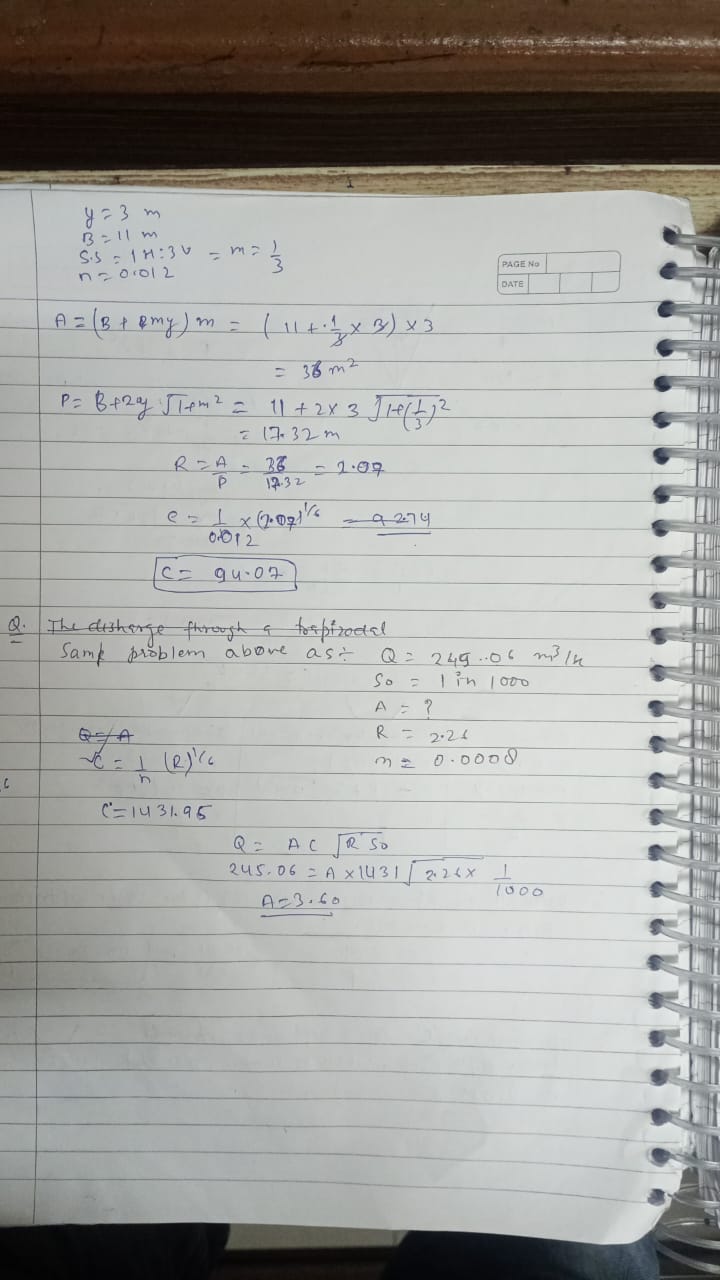 y = 3 m
B = 11 m
S.S = 1H:3V = m = 1/3
n = 0.012
PAGE No
DATE
A = (B + my) m = (11 + 1/3 x 3) x 3
= 36 m²
P = B+2y √1+m² = 11 + 2 x 3 √1+(1/3)²
= 17.32 m
R = A/P = 36/17.32 = 2.07
C = 1/0.012 x (2.07)^1/6 = 9274
C = 94.07
Q. The disharge through a trapizodal
Samp problem above as :- Q = 249..06 m³/s
So = 1 in 1000
A = ?
Q = A
R = 2.26
C = 1/n (R)^1/6
n = 0.0008
C = 1431.95
Q = A C √R So
245.06 = A x 1431 √2.26 x 1/1000
A = 3.60